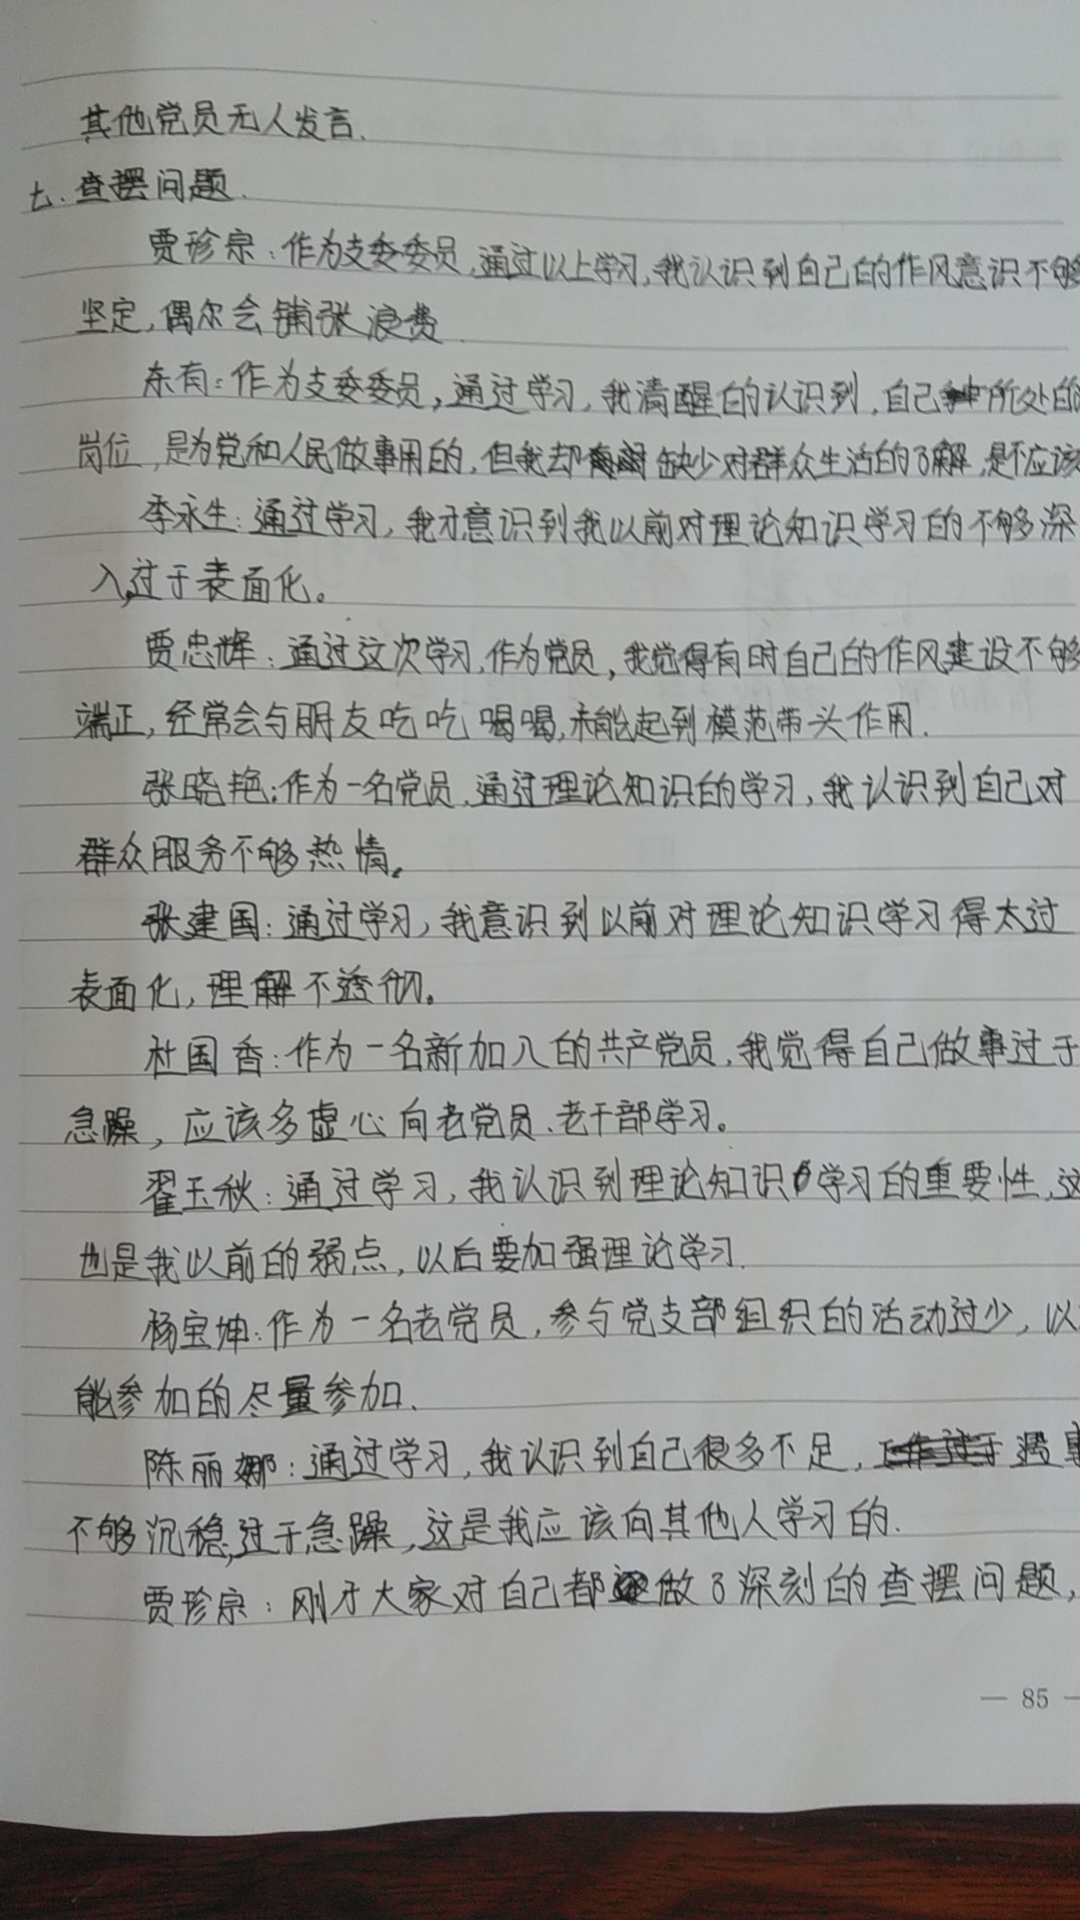 其他党员无人发言.
七.查摆问题.
贾珍宗:作为支委委员,通过以上学习,我认识到自己的作风意识不够
坚定,偶尔会铺张浪费.
东有:作为支委委员,通过学习,我清醒的认识到,自己所处的
岗位,是为党和人民做事用的,但我却缺少对群众生活的了解,是不应该
李永生:通过学习,我才意识到我以前对理论知识学习的不够深
入,过于表面化。
贾忠辉:通过这次学习,作为党员,我觉得有时自己的作风建设不够
端正,经常会与朋友吃吃喝喝,未能起到模范带头作用.
张晓艳:作为一名党员,通过理论知识的学习,我认识到自己对
群众服务不够热情。
张建国:通过学习,我意识到以前对理论知识学习得太过
表面化,理解不透彻。
杜国香:作为一名新加入的共产党员,我觉得自己做事过于
急躁,应该多虚心向老党员、老干部学习。
翟玉秋:通过学习,我认识到理论知识学习的重要性,这
也是我以前的弱点,以后要加强理论学习.
杨宝坤:作为一名老党员,参与党支部组织的活动过少,以
能参加的尽量参加.
陈丽娜:通过学习,我认识到自己很多不足,遇事
不够沉稳,过于急躁,这是我应该向其他人学习的.
贾珍宗:刚才大家对自己都做了深刻的查摆问题,
— 85 —